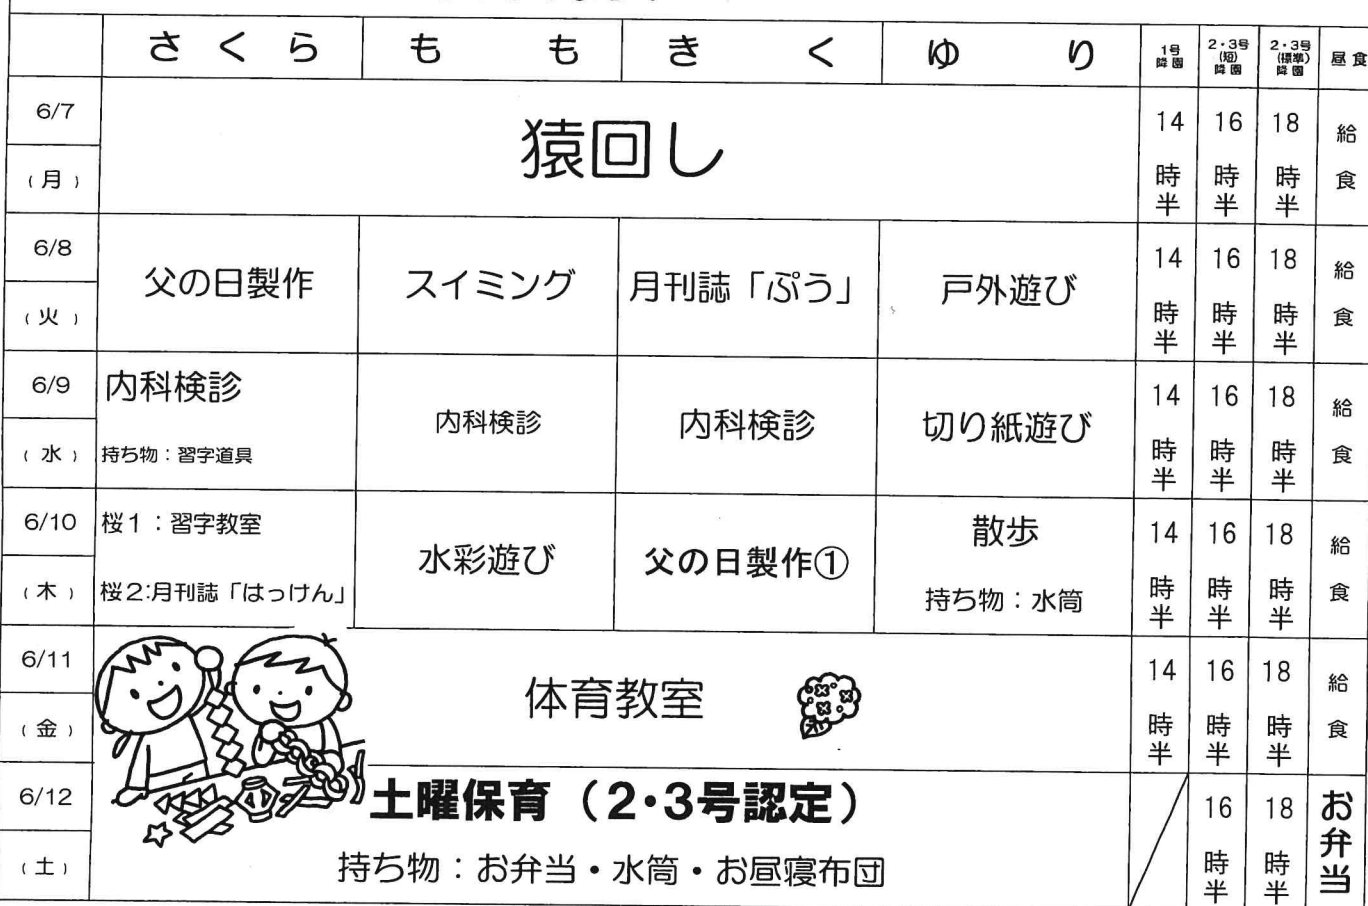 さくら もも きく ゆり 1号降園 2・3号(短)降園 2・3号(標準)降園 昼食
6/7 (月) 猿回し 14時半 16時半 18時半 給食
6/8 (火) 父の日製作 スイミング 月刊誌「ぷう」 戸外遊び 14時半 16時半 18時半 給食
6/9 (水) 内科検診 持ち物:習字道具 内科検診 内科検診 切り紙遊び 14時半 16時半 18時半 給食
6/10 (木) 桜1:習字教室 桜2:月刊誌「はっけん」 水彩遊び 父の日製作① 散歩 持ち物:水筒 14時半 16時半 18時半 給食
6/11 (金) 体育教室 14時半 16時半 18時半 給食
6/12 (土) 土曜保育(2・3号認定) 16時半 18時半 お弁当
持ち物:お弁当・水筒・お昼寝布団